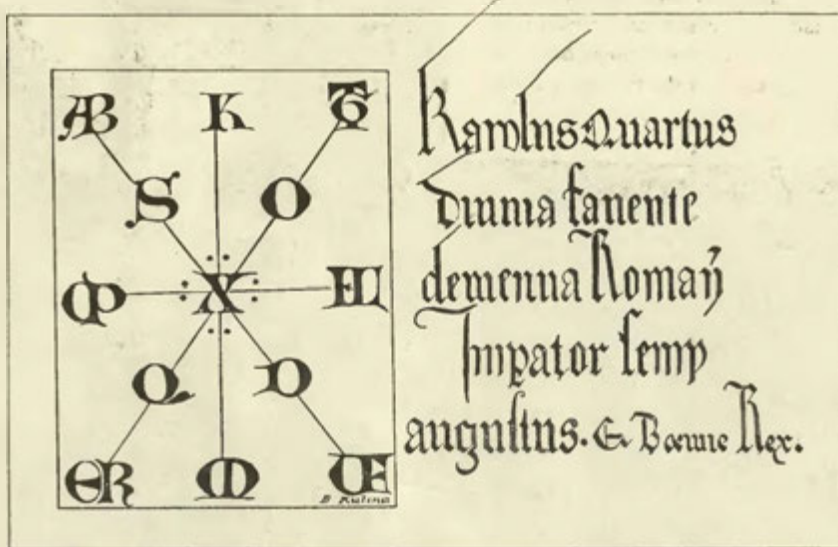 AB K TG
S O
Φ X HL
Q D
ER M CE
B Kulena
Karolus Quartus
Diuina fauente
clemencia Romaꝝ
Impator semp
augustus. & Boemie Rex.